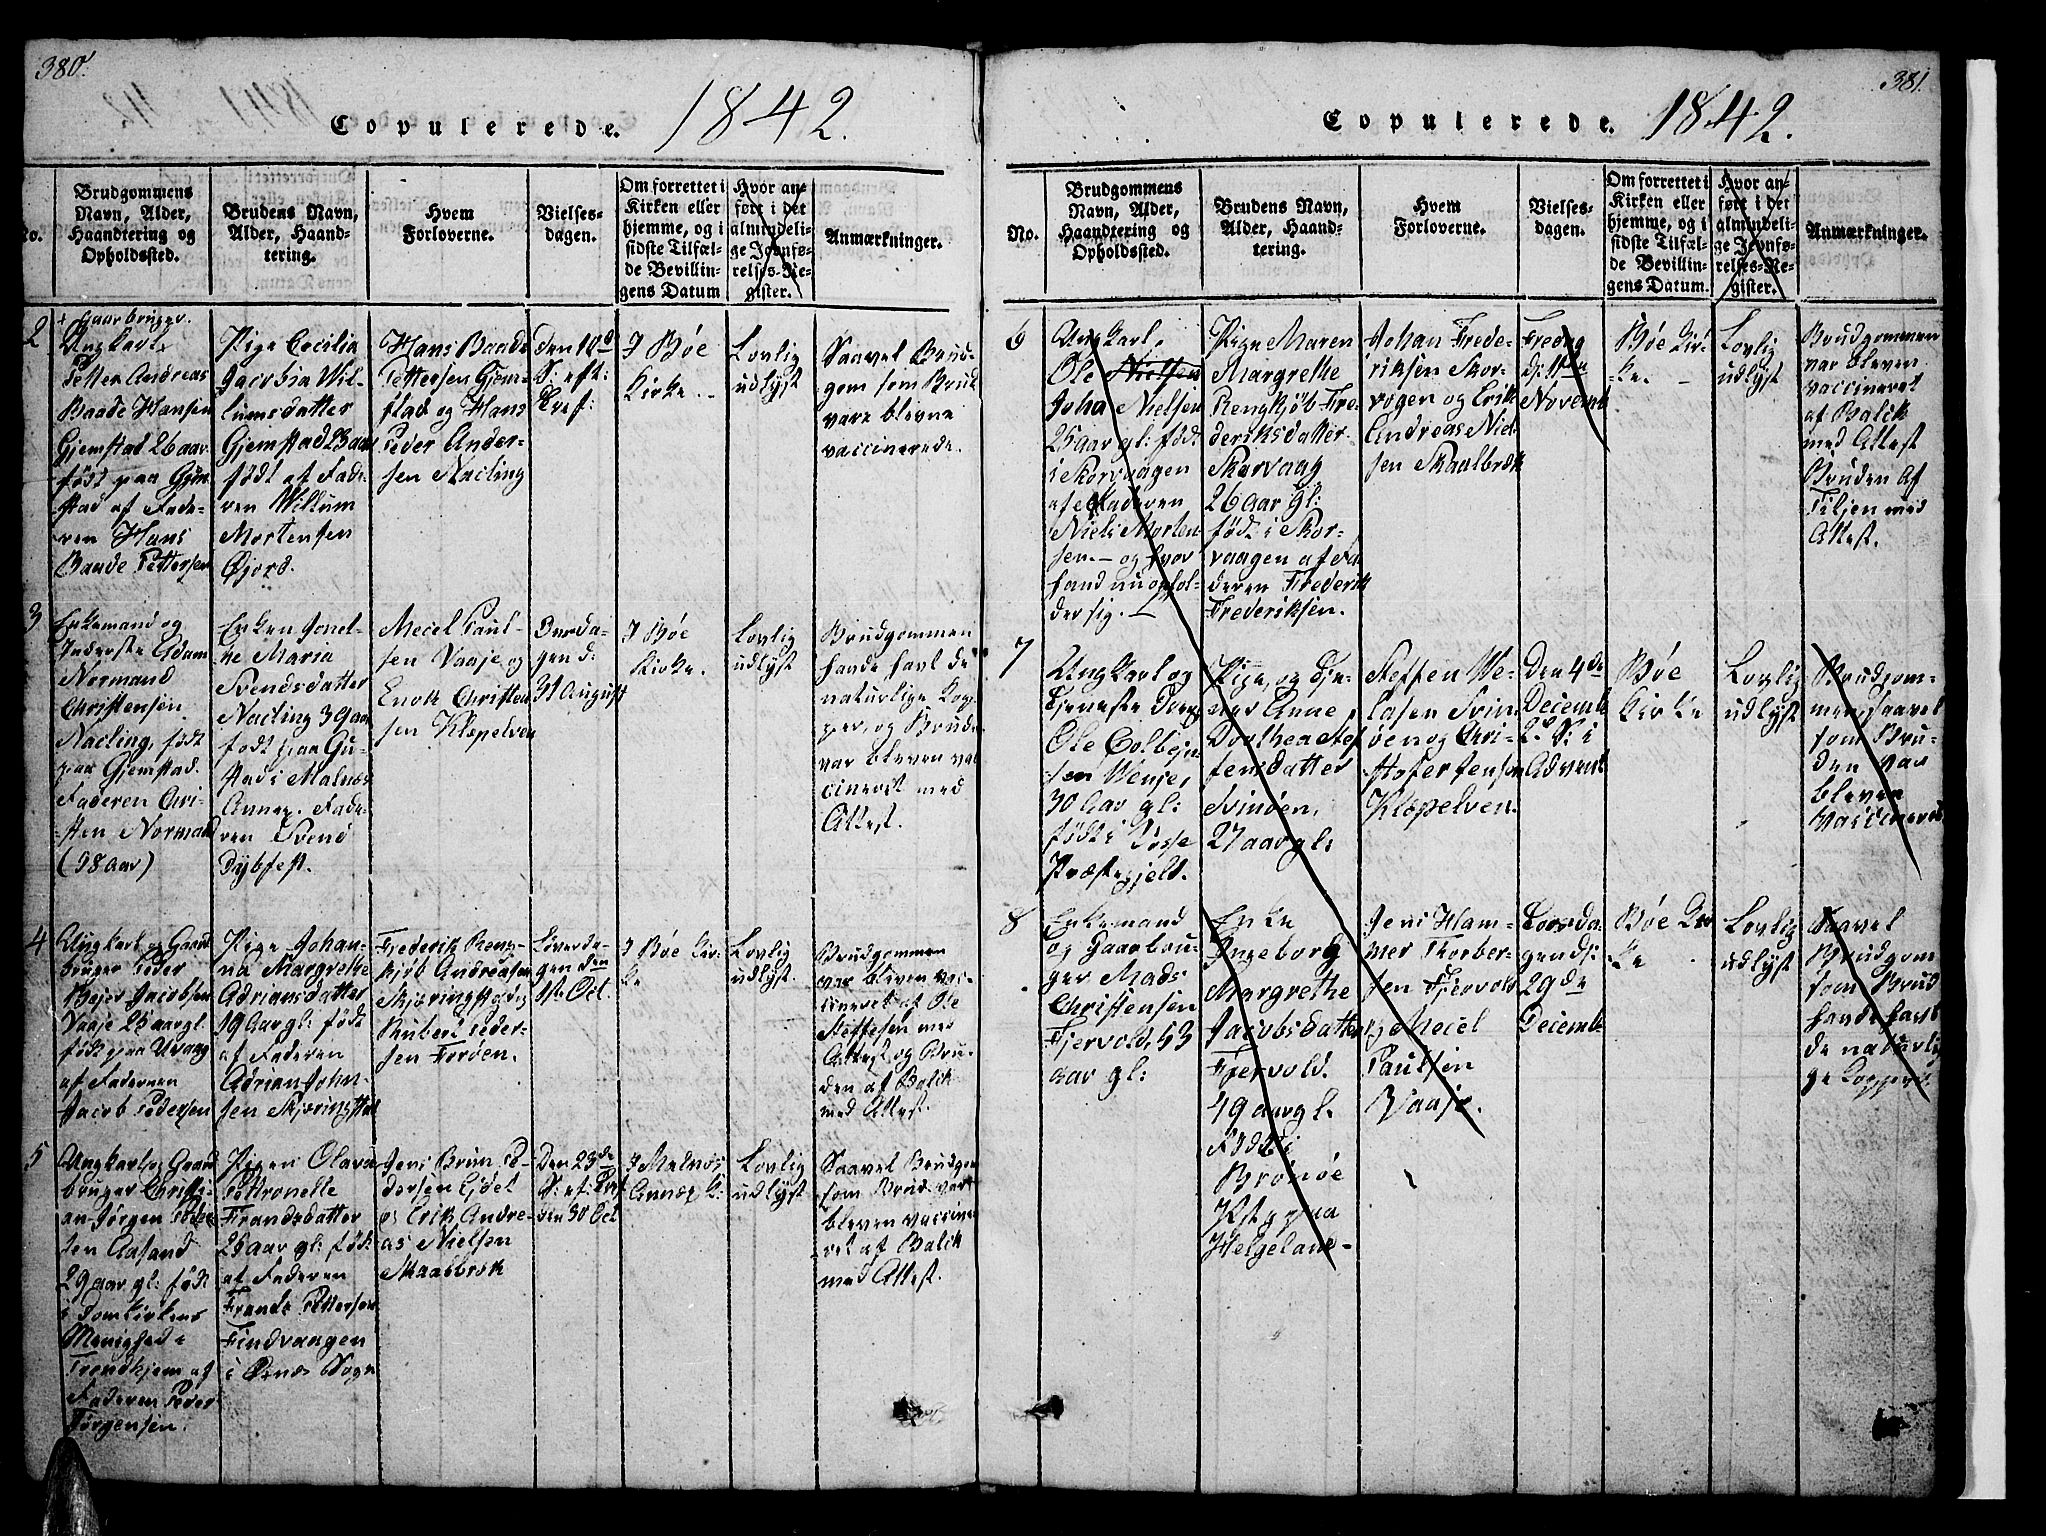 380.
Copulerede. 1842.
No.
Brudgommens
Navn, Alder,
Haandtering og
Opholdssted.
Brudens Navn,
Alder, Haand-
tering.
Hvem
Forloverne.
Vielses-
dagen.
Om forrettet i
Kirken eller
hjemme, og i
sidste Tilfæl-
de Bevillin-
gens Datum
Hvor an-
ført i det
almindeli-
ge Jevnfø-
relses-Re-
gister.
Anmærkninger.
2
+ Gaarbruger.
Ungkarl
Petter Andreas
Baade Hansen
Gjemstad 26 aar
født paa Gjem-
stad af Fade-
ren Hans
Baade Pettersen
Pige Cecilia
Jacobia Wil-
lumsdatter
Gjemstad 23 aar
født af Fade-
ren Willum
Mortensen
Øjord.
Hans Baade
Pettersen Gjem-
stad og Hans
Peder Ander-
sen Nacling
Den 10de
S: eft:
I Bøe
Kirke.
Lovlig
udlyst
Saavel Brud-
gom som Brud
vare blevne
vaccinerede.
3
Enkemand og
Inderste Adam
Normand
Christensen
Nacling, født
paa Gjemstad.
Faderen Chri-
sten Normand
(38 aar)
Enken
Maria
Svendsdatter
Nacling 39 aar
født paa Gu-
stad i Malnæs
Annex. Fade-
ren Svend
Dybfest.
Mecel Paul-
sen Vaaje og
Enok Christen
sen Kløpelven
Onsda-
gen d:
31 August
I Bøe
Kirke.
Lovlig
udlyst
Brudgommen
havde havt de
naturlige Kop-
per, og Brude
var bleven vac
cineret med
Attest.
4
Ungkarl og Gaard
bruger Peder
Bejer Jacobsen
Vaaje 25 aar gl.
født paa Uvaag
af Faderen
Jacob Pedersen
Pige Johan-
na Margrethe
Adriansdatter
19 Aar gl: født
af Faderen
Adrian John-
sen Skjæringstad
Frederik Reng-
kjøb Andreasen
Skjæringstad og
Rubert Peder-
sen Forøen.
Løverda-
gen den
1ste Oct.
I Bøe Kir-
ke
Lovlig
udlyst.
Brudgommen
var bleven vac-
cineret af Ole
Steffesen med
Attest og Bru-
den af Balck
med Attest.
5
Ungkarl og Gaard
bruger Christi-
an Jørgen Peder
sen Aasand
29 aar gl: født
i Domkirkens
Menighed i
Trondhjem af
Faderen Peder
Jørgensen.
Pigen Olava
Petronelle
Frandsdatter
25 aar gl: født
af Faderen
Frands Pettersen
Findvaagen
i Øxnæs Sogn
Jens Brun Pe-
dersen Ejdet
og Erik Andre-
as Nielsen
Skaalbrek
Den 23de
S: ef:
den 30 Oct
I Malnæs
Annex K:
Lovlig
udlyst
Saavel Brudgom
som Brud vare
bleven vaccine
ret af Balck
med Attest.
381.
Copulerede. 1842.
No.
Brudgommens
Navn, Alder,
Haandtering og
Opholdssted.
Brudens Navn,
Alder, Haand-
tering.
Hvem
Forloverne.
Vielses-
dagen.
Om forrettet i
Kirken eller
hjemme, og i
sidste Tilfæl-
de Bevillin-
gens Datum.
Hvor an-
ført i det
almindeli-
ge Jevnfø-
relses-Re-
gister.
Anmærkninger.
6
Ungkarl.
Ole Nielsen
Joha Nielsen
25 aar gl: født
i Skorvaagen
af Faderen
Niels Morten-
sen – og hvor
hand nu ophol-
der sig.
Pige Maren
Margrethe
Rengkjøb Fre-
deriksdatter
Skorvaag
26 aar gl:
født i Skor-
vaagen af Fa
deren Frederik
Frederiksen.
Johan Frede-
riksen Skor-
vogen og Erik
Andreas Niel
sen Skaalbrek
Fredag
d:
Novemb
Bøe Kir-
ke.
Lovlig
udlyst
Brudgommen
var bleven
vaccineret
af Balck
med Attest
Bruden af
Tiljen med
Attest.
7
Ungkarl og
Tjeneste Dreng
Ole Colbejn
sen Wenje,
30 Aar gl:
født i
Præstegjeld.
Pige, og Tje-
ner Anne
Dorthea Stef
fensdatter
Svinøen,
27 aar gl:
Steffen We-
lasen Svin
øen og Chri-
stofer Jensen
Kløpelven.
Den 4de
Decemb
2. S: i
Advent
Bøe
Kirke
Lovlig
udlyst
Brudgom-
men saavel
som Bru-
den var
bleven
vaccineret
8
Enkemand
og Gaarbru-
ger Mads
Christensen
Fjervold, 53
aar gl:
Enke
Ingeborg
Margrethe
Jacobsdatter
Fjervold.
49 aar gl.
Født i
Brønøe
paa
Helgeland
Jens Ham-
mer Thorber-
sen Fjervold
og Mecel
Paulsen
Vaaje.
Torsda-
gen d:
29de
Decemb
Bøe Kir
ke
Lovlig
udlyst
Saavel
Brudgom
som Brud
havde havt
de naturli-
ge Kopper.